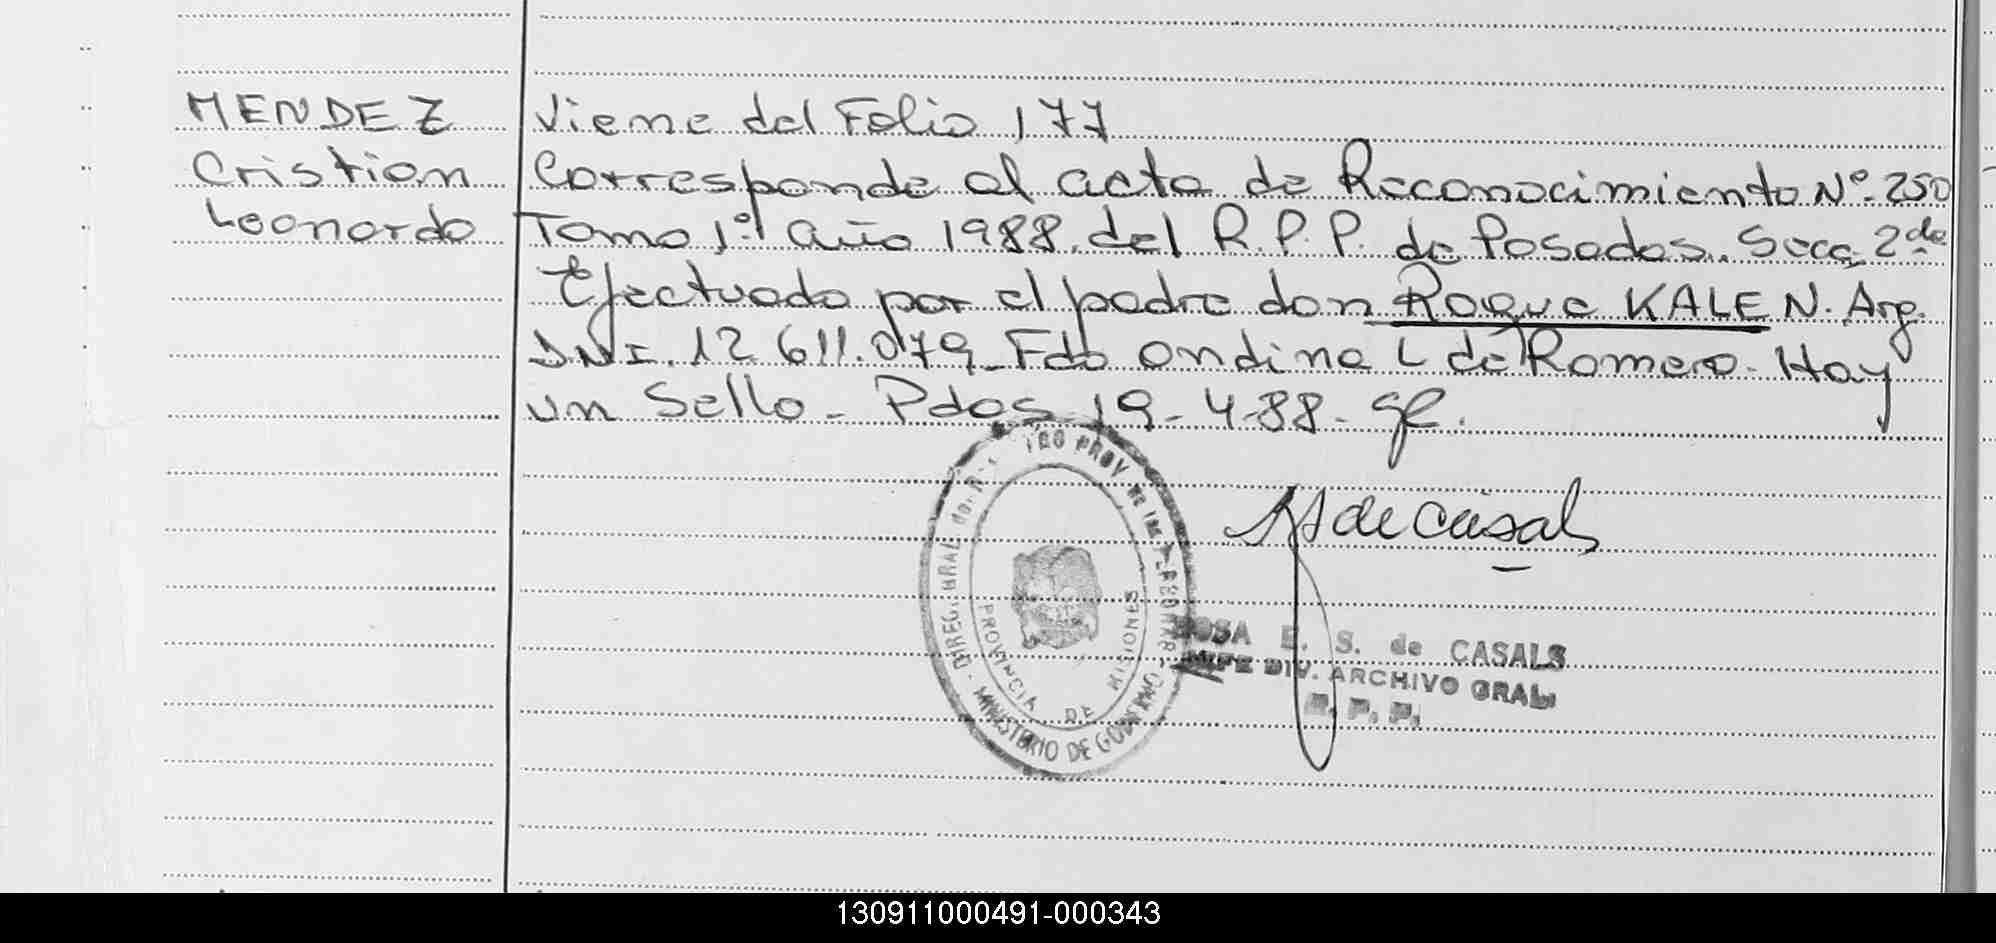 MENDEZ
Cristian
Leonardo
Viene del Folio 177
Corresponde al acta de Reconocimiento Nº. 250
Tomo 1º. año 1988. del R.P.P. de Posadas. Secc. 2da
Efectuado por el padre don Roque KALEN. Arg.
DNI. 12.611.079_Fdo Ondina L de Romero. Hay
un Sello - Pdas 19-4-88-
de Casals
PROVINCIA DE MISIONES
MINISTERIO DE GOBIERNO
E. S. de CASALS
JEFE DIV. ARCHIVO GRAL.
R. P. P.
130911000491-000343